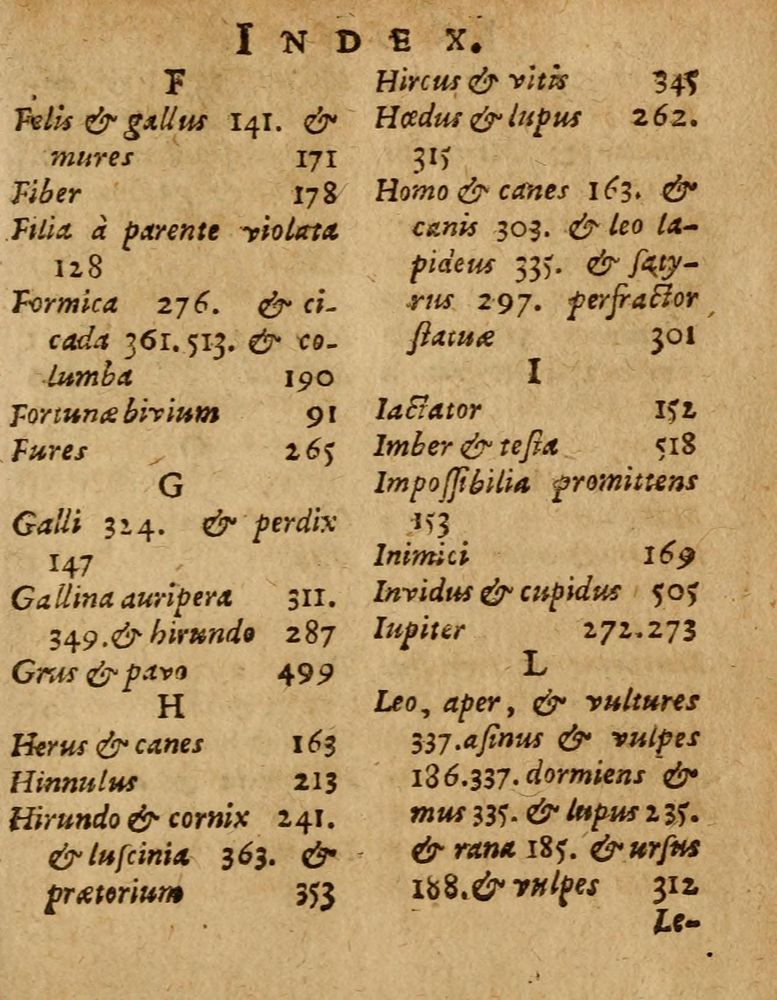 INDEX.
F
Felis & gallus 141. &
mures 171
Fiber 178
Filia à parente violata
128
Formica 276. & ci-
cada 361.513. & co-
lumba 190
Fortunæ bivium 91
Fures 265
G
Galli 324. & perdix
147
Gallina auripera 311.
349.& hirundo 287
Grus & pavo 499
H
Herus & canes 163
Hinnulus 213
Hirundo & cornix 241.
& luſcinia 363. &
prætorium 353
Hircus & vitis 345
Hœdus & lupus 262.
315
Homo & canes 163. &
canis 303. & leo la-
pideus 335. & ſaty-
rus 297. perfractor
ſtatuæ 301
I
Iactator 152
Imber & teſta 518
Impoſſibilia promittens
153
Inimici 169
Invidus & cupidus 505
Iupiter 272.273
L
Leo, aper, & vultures
337.aſinus & vulpes
186.337. dormiens &
mus 335. & lupus 235.
& rana 185. & urſus
188.& vulpes 312
Le-